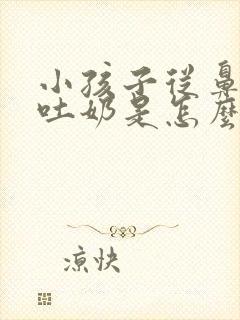 小孩子從鼻
吐奶是怎麼
凉快